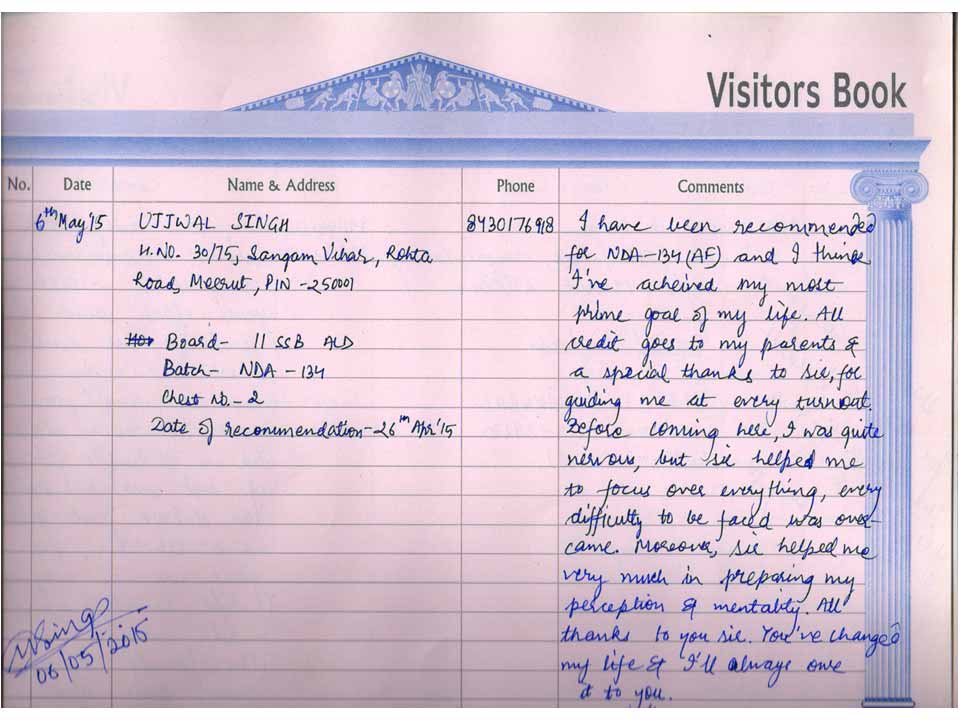 Visitors Book
No. Date Name & Address Phone Comments
6th May'15 UJJWAL SINGH 8430176918 I have been recommended
H.NO. 30/75, Sangam Vihar, Rohta for NDA-134 (AF) and I think
Road, Meerut, PIN -250001 I've acheived my most
prime goal of my life. All
Board- 11 SSB ALD credit goes to my parents &
Batch- NDA - 134 a special thanks to sir, for
Chest No.- 2 guiding me at every turnout.
Date of recommendation-26th Apr'15 Before coming here, I was quite
nervous, but sir helped me
to focus over everything, every
difficulty to be faced was over-
came. Moreover, sir helped me
very much in preparing my
perception & mentality. All
thanks to you sir. You've changed
my life & I'll always owe
it to you.
06/05/2015